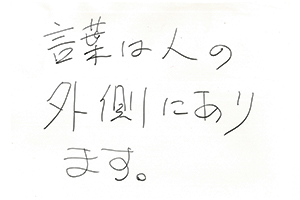 言葉は人の
外側にあり
ます。